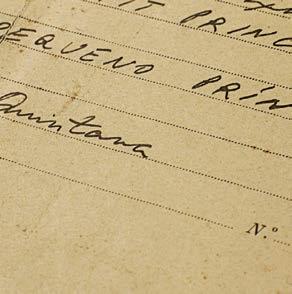 IT PRINC
PEQUENO PRÍN
Quintana
N.º